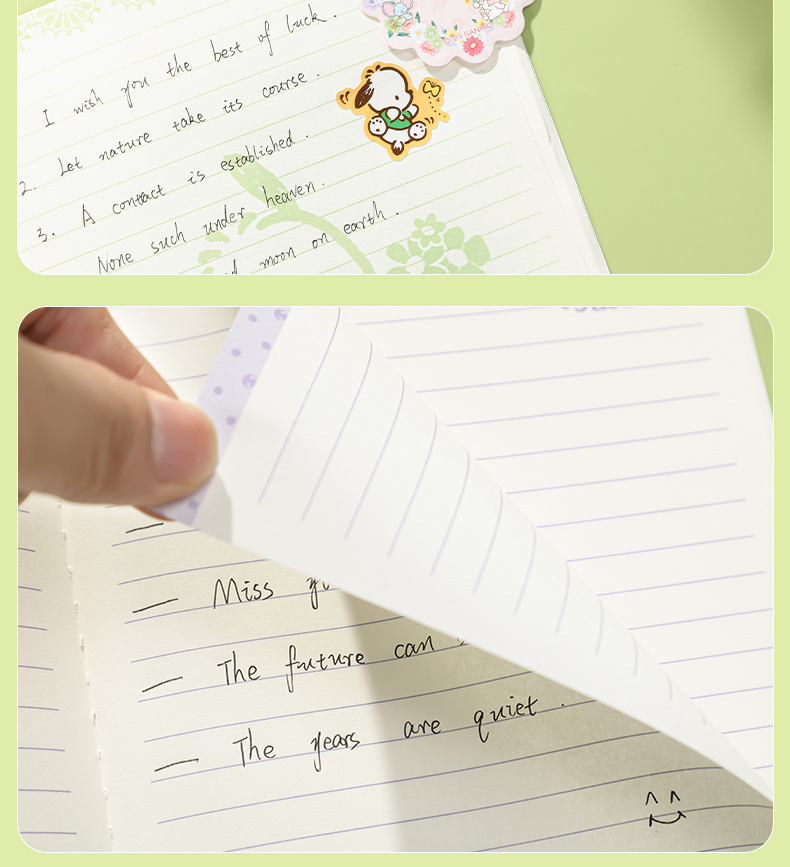 SANRIO
I wish you the best of luck.
2. Let nature take its course.
3. A contract is established.
None such under heaven.
moon on earth.
Miss
The future can
The years are quiet.